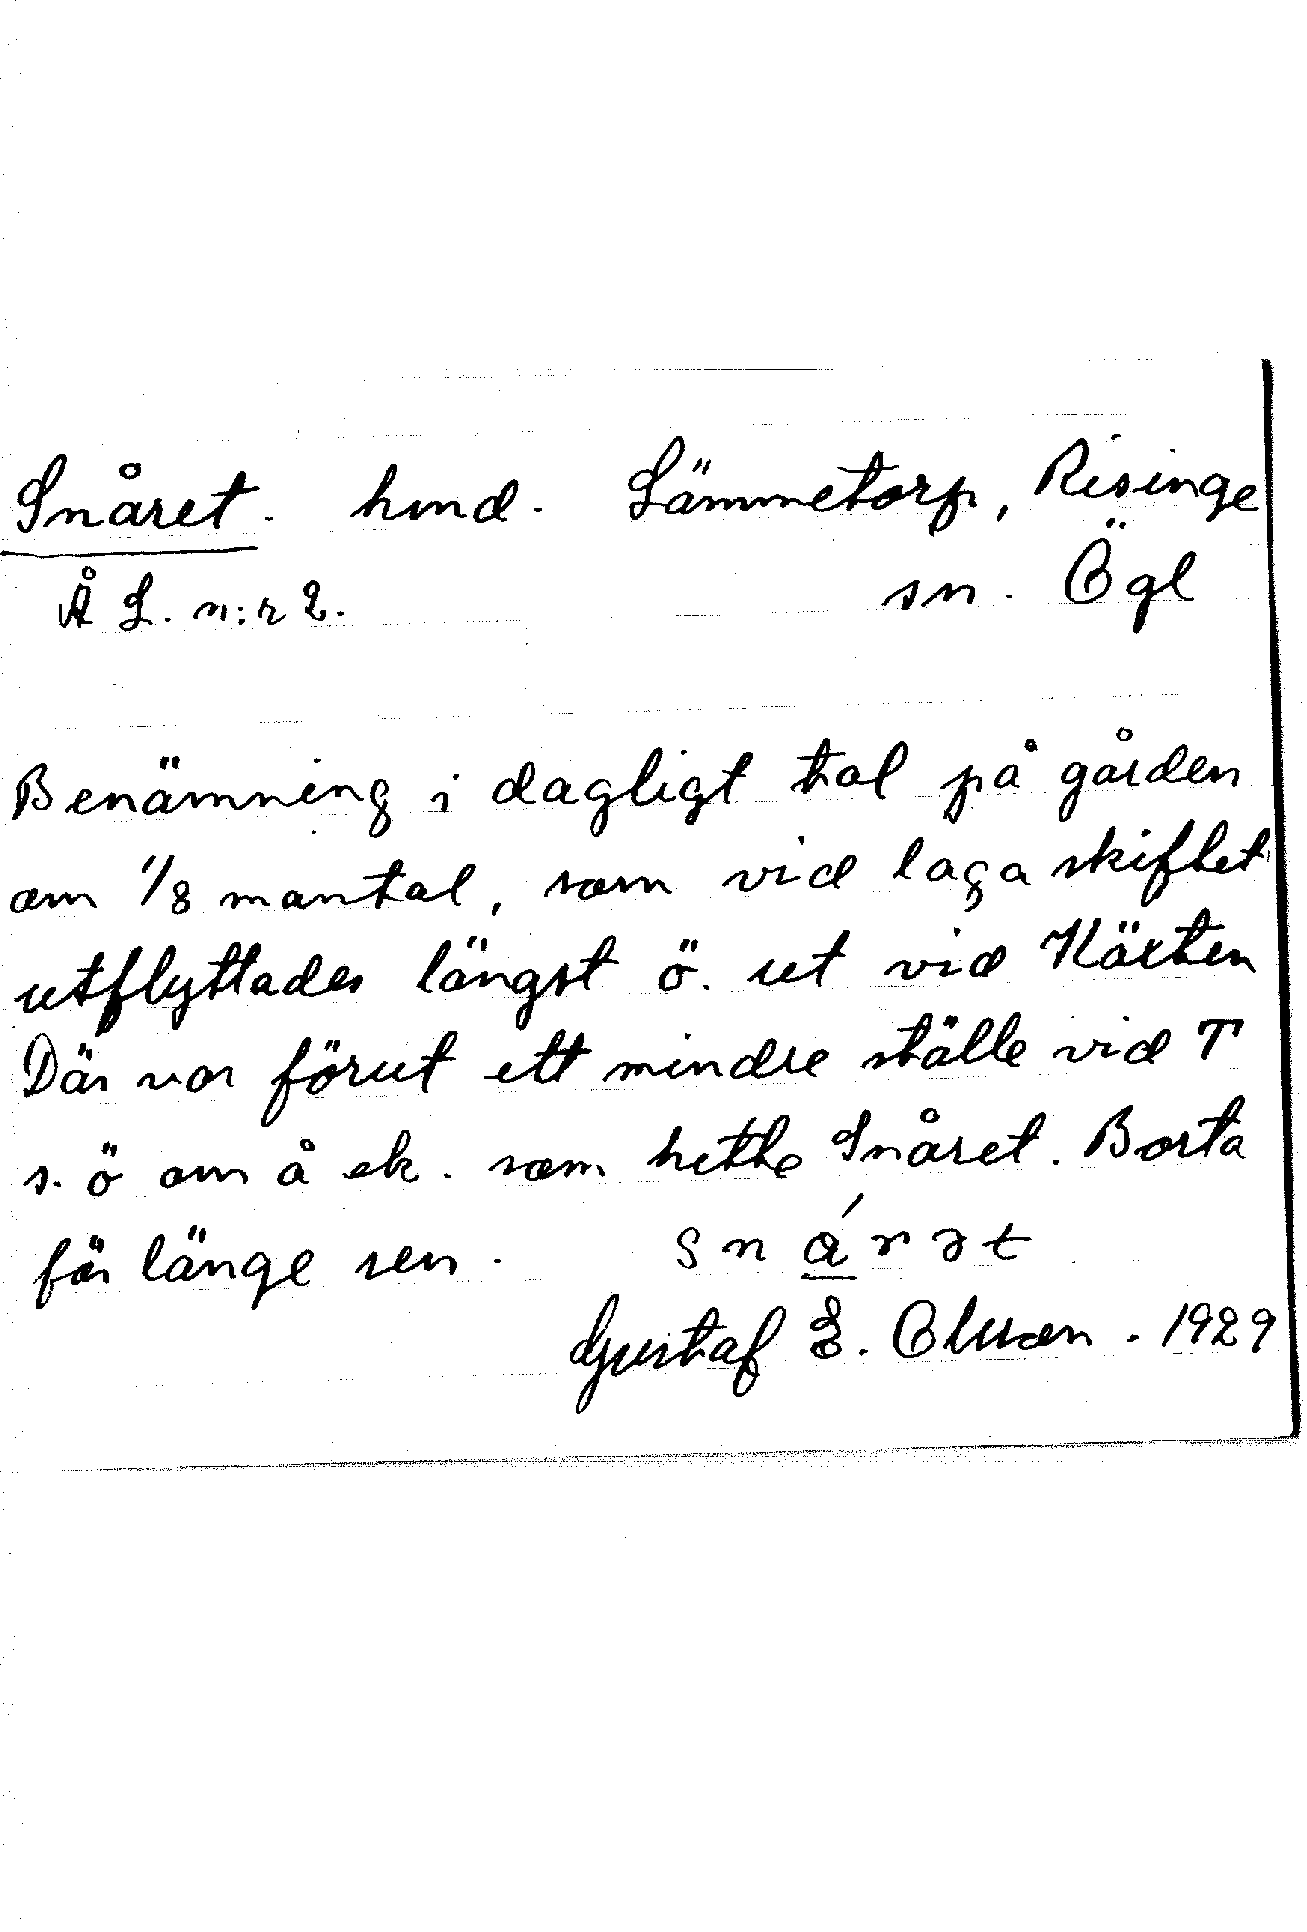 Snåret. hmd. Lämmetorp, Risinge
Å L. n:r 2. sn. Ögl
Benämning i dagligt tal på gården
om 1/8 mantal, som vid laga skiftet
utflyttades längst ö. ut vid Kärten
Där var förut ett mindre ställe vid T
s. ö om å ek. som hette Snåret. Borta
för länge sen. snárət
Gustaf E. Olsson. 1929